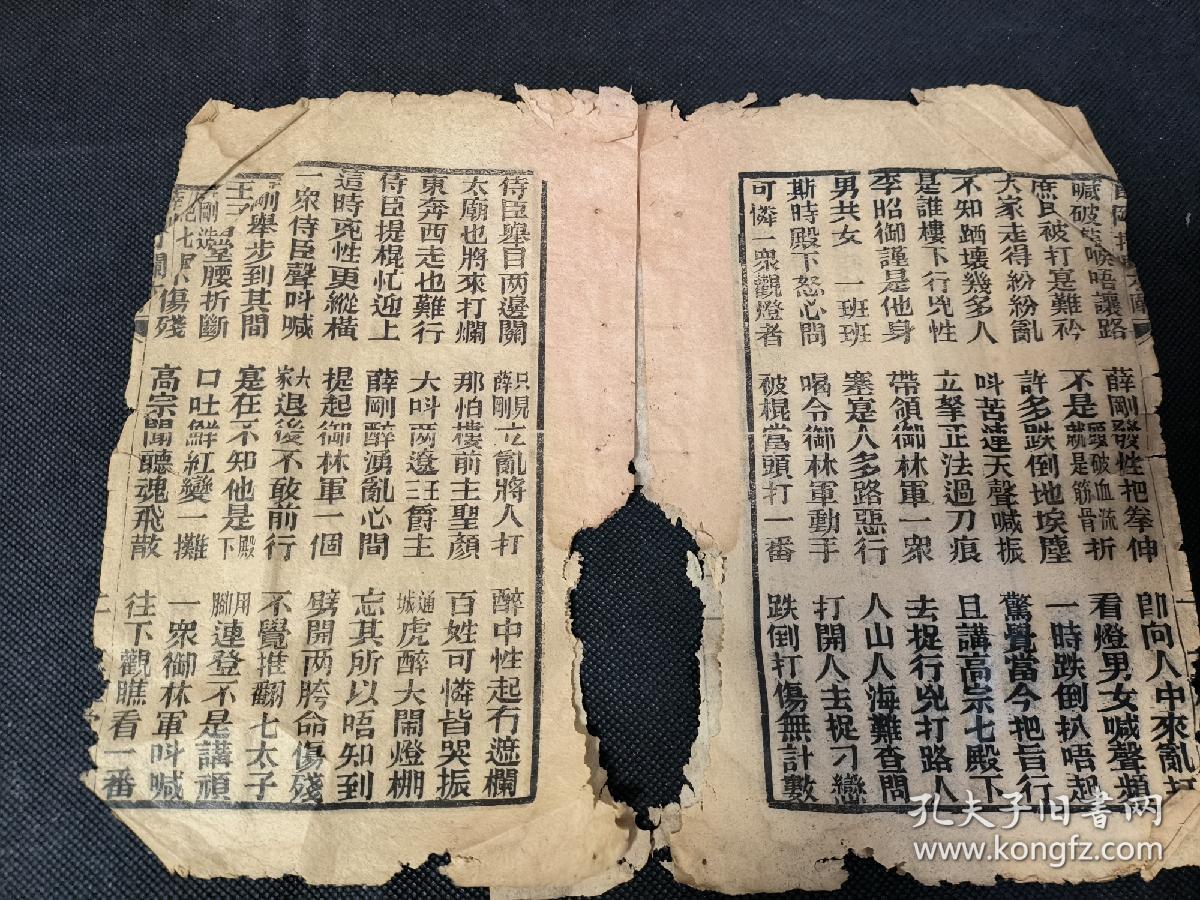 喊破喉唔讓路 薛剛發性把拳伸 卽向人中來亂打
庶民被打寔難矜 不是頭破血流就是筋骨折 看燈男女喊聲頻
大家走得紛紛亂 許多跌倒地埃塵 一時跌倒扒唔起
不知跴壞幾多人 呌苦連天聲喊振 驚覺當今把旨行
是誰樓下行兇性 立拏正法過刀痕 且講高宗七殿下
李昭御謹是他身 帶領御林軍一衆 去捉行兇打路人
男共女 一班班 塞寔人多路惡行 人山人海難查問
斯時殿下怒心問 喝令御林軍動手 打開人去捉刁戀
可憐一衆觀燈者 被棍當頭打一番 跌倒打傷無計數
侍臣舉目两邊關 只見薛剛立亂將人打 醉中性起冇遮欄
太廟也將來打爛 那怕樓前主聖顏 百姓可憐皆哭振
東奔西走也難行 大呌两遼王爵主 通城虎醉大閙燈棚
侍臣提棍忙迎上 薛剛醉湧亂心間 忘其所以唔知到
這時兇性更縱橫 提起御林軍一個 劈開两胯命傷殘
一衆侍臣聲呌喊 大家退後不敢前行 不覺推翻七太子
剛舉步到其間 寔在不知他是殿下 用脚連登不是講頑
王堂腰折斷 口吐鮮紅變一攤 一衆御林軍呌喊
剛造七傷殘 高宗聞聽魂飛散 往下觀瞧看一番
孔夫子旧书网
www.kongfz.com